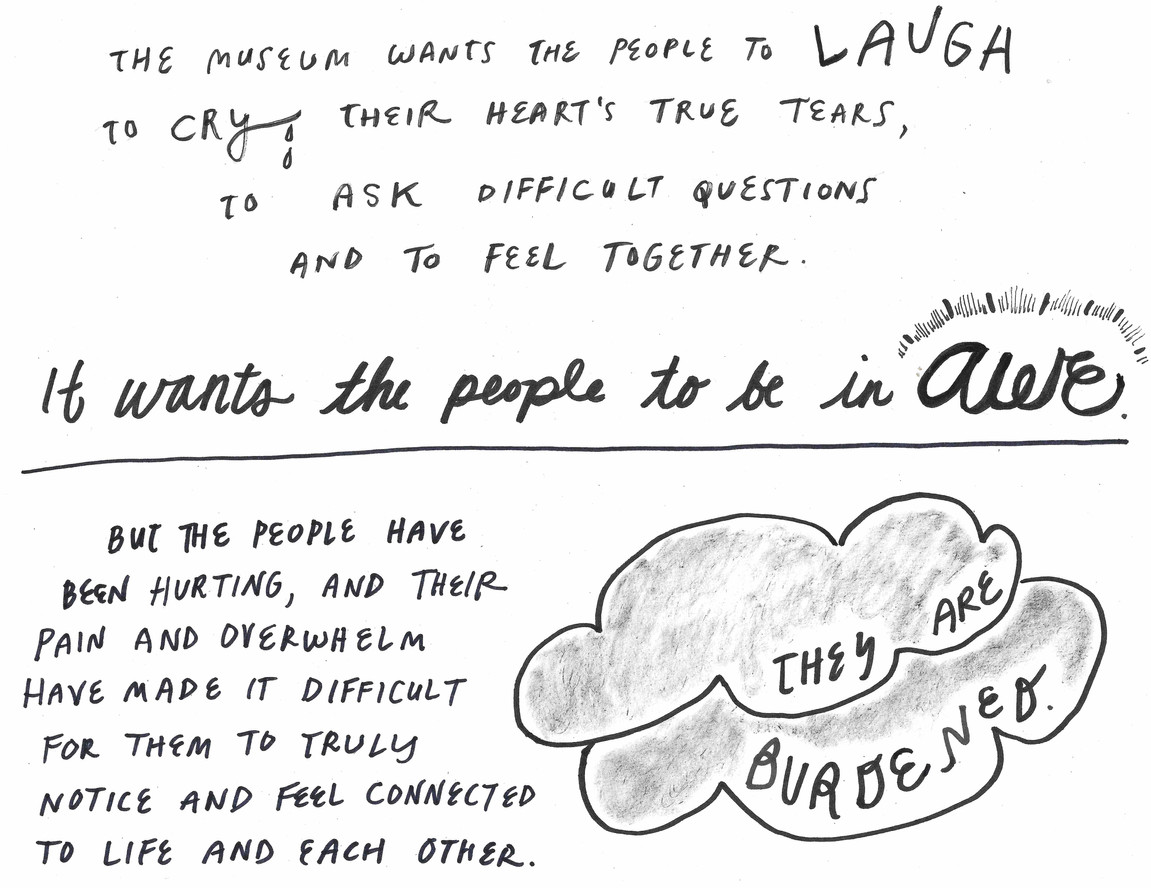 THE MUSEUM WANTS THE PEOPLE TO LAUGH
TO CRY THEIR HEART'S TRUE TEARS,
TO ASK DIFFICULT QUESTIONS
AND TO FEEL TOGETHER.
It wants the people to be in awe.
BUT THE PEOPLE HAVE
BEEN HURTING, AND THEIR
PAIN AND OVERWHELM
HAVE MADE IT DIFFICULT
FOR THEM TO TRULY
NOTICE AND FEEL CONNECTED
TO LIFE AND EACH OTHER.
THEY ARE
BURDENED.